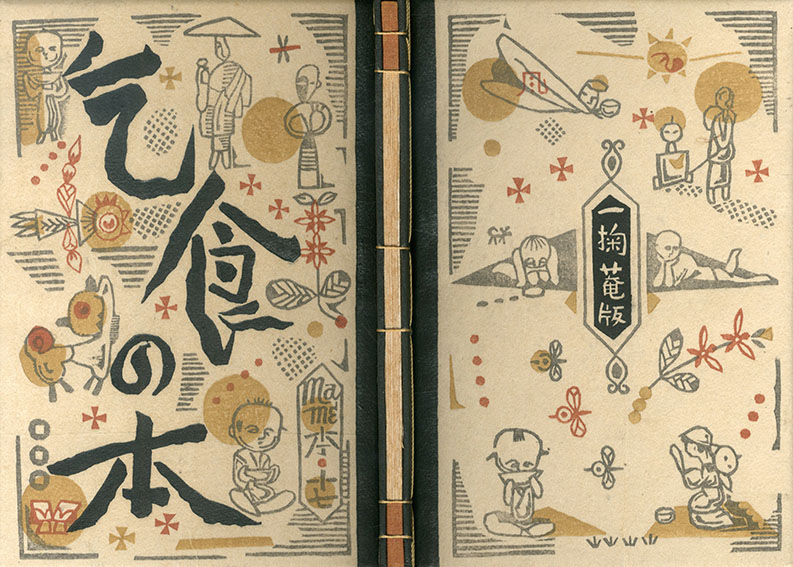 乞食の本
MaME本・十七
一掬菴版